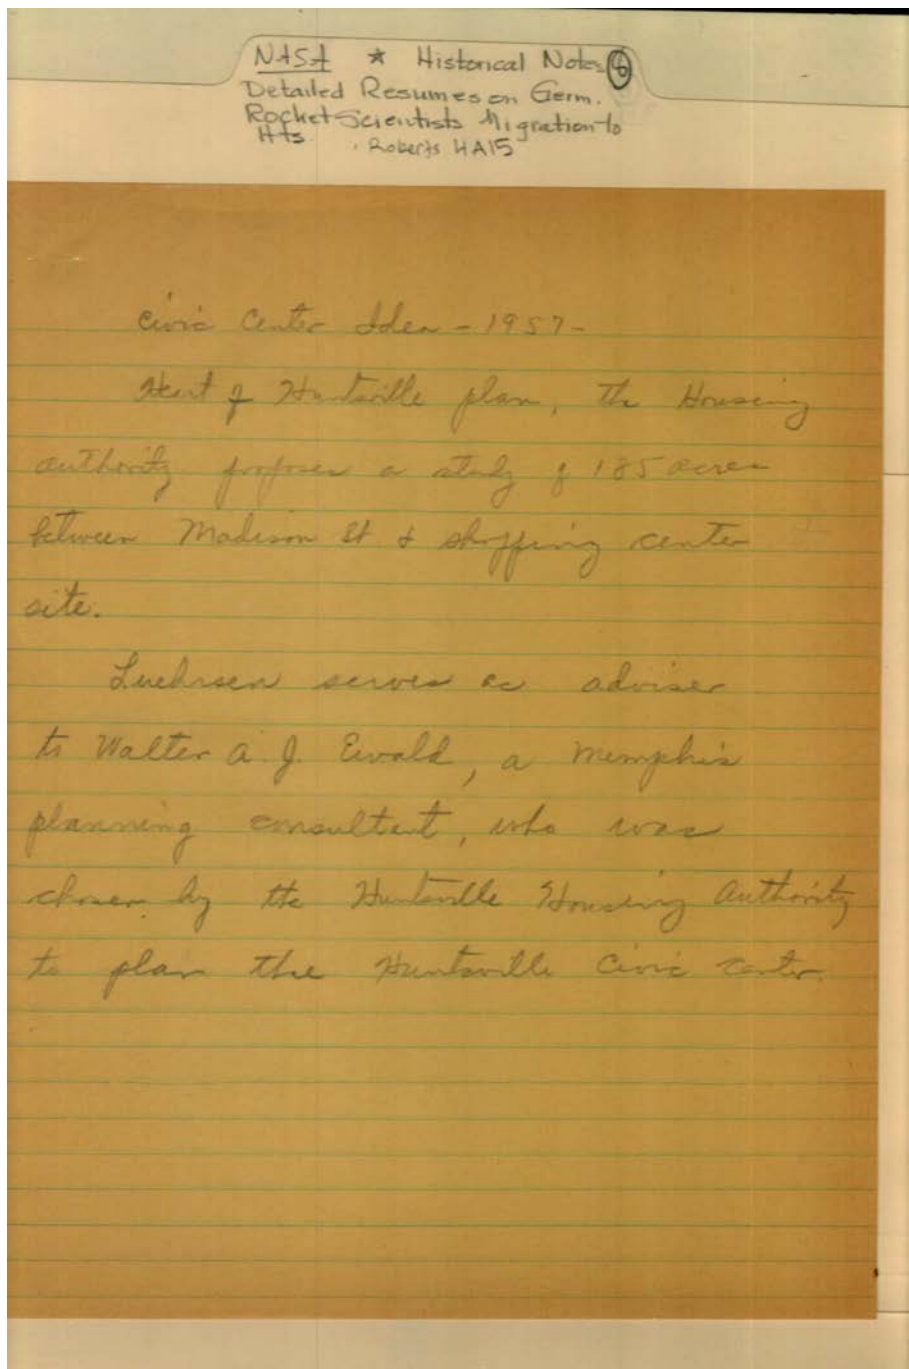 NASA * Historical Notes 6
Detailed Resumes on Germ.
Rocket Scientists Migration to
Hts. Roberts HA15
Civic Center Idea - 1957 -
Heart of Huntsville plan, the Housing
authority proposes a study of 185 acres
between Madison St & shopping center
site.
Luehrsen serves as adviser
to Walter A. J. Ewald, a Memphis
planning consultant, who was
chosen by the Huntsville Housing Authority
to plan the Huntsville Civic Center.